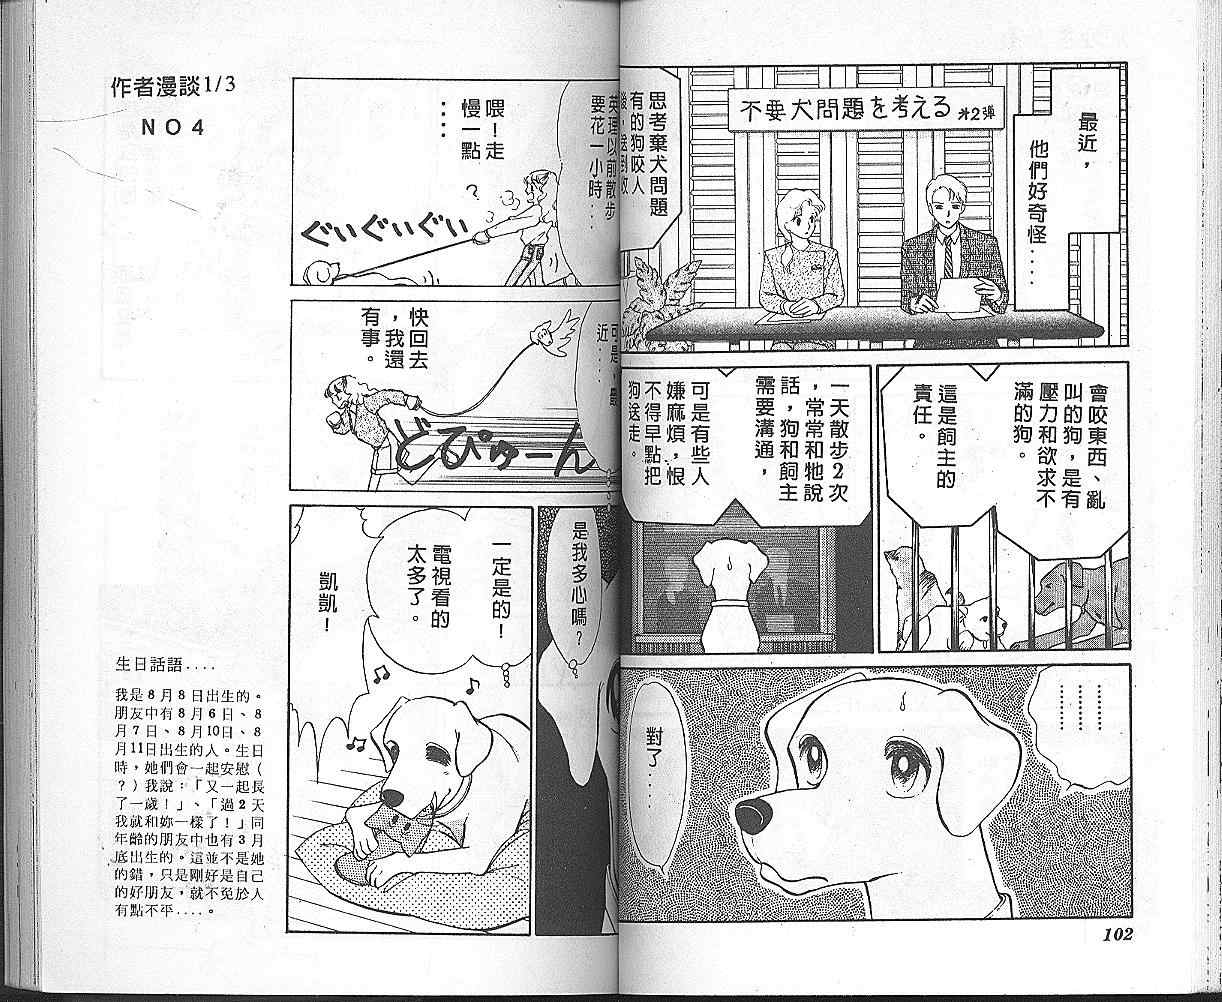 最近，
他們好奇怪‥‥
不要犬問題を考える 才2弾
思考棄犬問題
有的狗咬人
會咬東西、亂
叫的狗，是有
壓力和欲求不
滿的狗。
這是飼主的
責任。
一天散步2次
，常常和牠說
話，狗和飼主
需要溝通，
可是有些人
嫌麻煩，恨
不得早點把
狗送走。
‥‥‥‥
‥‥‥‥
對了‥‥
102
英理以前散步
要花一小時‥‥
喂！走
慢一點
‥‥
?
ぐいぐいぐい
近‥‥
快回去
，我還
有事。
どぴゅーん
是我多心嗎？
一定是的！
電視看的
太多了。
凱凱！
作者漫談1/3
NO4
生日話語‥‥
我是8月8日出生的。
朋友中有8月6日、8
月7日、8月10日、8
月11日出生的人。生日
時，她們會一起安慰(
?)我說：「又一起長
了一歲！」、「過2天
我就和妳一樣了！」同
年齡的朋友中也有3月
底出生的。這並不是她
的錯，只是剛好是自己
的好朋友，就不免於人
有點不平‥‥。